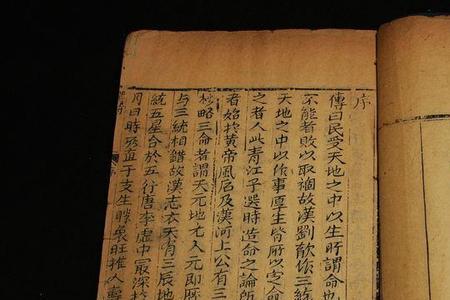 序
傳曰民受天地之中以生所謂命也
不能者敗以取禍故漢劉歆作三統
天地之中以作事厚生皆所以定命
之者人此青江子選時造命之論所
者始於黃帝風后及漢河上公有三
略三命者謂天元地元人元即
与三統相錯故漢志云天有三辰地
統五星合於五行唐李虛中最深於
月日時所直干支生勝衰旺推人壽